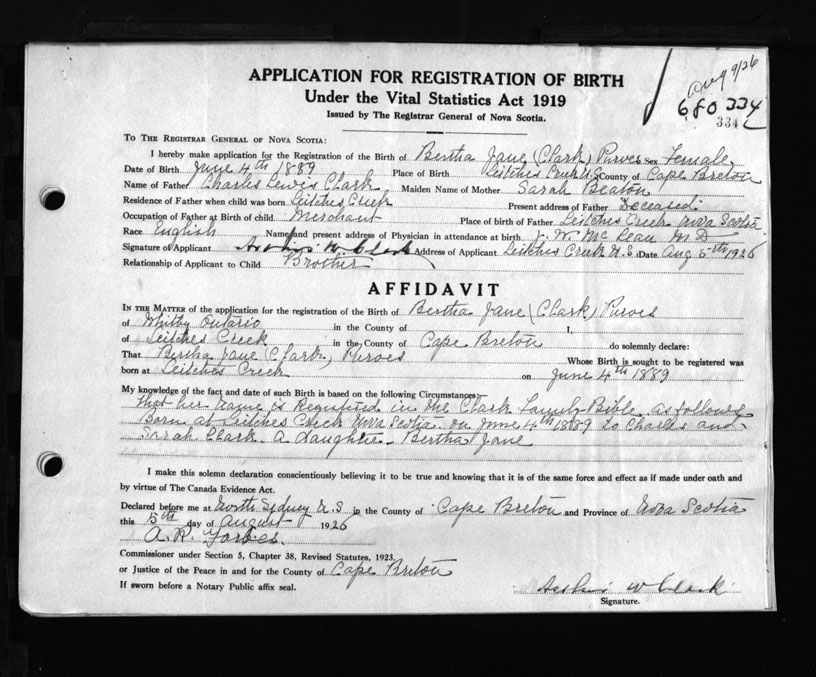 APPLICATION FOR REGISTRATION OF BIRTH
Under the Vital Statistics Act 1919
Issued by The Registrar General of Nova Scotia.
Aug 9/26
680334
334
To The Registrar General of Nova Scotia:
I hereby make application for the Registration of the Birth of Bertha Jane (Clark) Purves Sex Female
Date of Birth June 4th 1889 Place of Birth Leitches Creek N.S. County of Cape Breton
Name of Father Charles Lewis Clark Maiden Name of Mother Sarah Beaton
Residence of Father when child was born Leitches Creek Present address of Father Deceased.
Occupation of Father at Birth of child Merchant Place of birth of Father Leitches Creek Nova Scotia
Race English Name and present address of Physician in attendance at birth J. W. McLean M D
Signature of Applicant W. Clark Address of Applicant Leitches Creek N.S. Date Aug 5th 1926
Relationship of Applicant to Child Brother
AFFIDAVIT
In the Matter of the application for the registration of the Birth of Bertha Jane (Clark) Purves
of Whitby Ontario in the County of I,
of Leitches Creek in the County of Cape Breton do solemnly declare:
That Bertha Jane (Clark) Purves Whose Birth is sought to be registered was
born at Leitches Creek on June 4th 1889
My knowledge of the fact and date of such Birth is based on the following Circumstances:
That her name is Registered in the Clark Family Bible as follows
Born at Leitches Creek Nova Scotia on June 4th 1889 to Charles and
Sarah Clark a daughter Bertha Jane
I make this solemn declaration conscientiously believing it to be true and knowing that it is of the same force and effect as if made under oath and
by virtue of The Canada Evidence Act.
Declared before me at North Sidney N.S in the County of Cape Breton and Province of Nova Scotia
this 5th day of August 1926
A. R. Forbes.
Commissioner under Section 5, Chapter 38, Revised Statutes, 1923.
or Justice of the Peace in and for the County of Cape Breton
If sworn before a Notary Public affix seal.
W Clark
Signature.